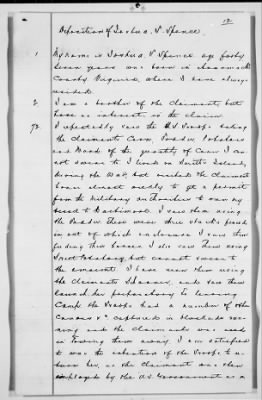 12
Deposition of Joshua P. Spence.
1 My name is Joshua P Spence age forty
seven years was born in Accomack
County Virginia, where I have always
resided.
2 I am a brother of the claimant, but
have no interest in the claim
72 I repeatedly saw the U S Troops taking
the claimants Corn, Fodder Potatoes
and Wood of the quantity of Corn I can
not swear to I lived on Smiths Island,
during the War, but visited the Claimant
 almost weekly to get a permit
from the Military authorities to run my
vessel to Baltimore. I saw them using
the Fodder There were three stacks fenced
in out of which enclosure I saw them
feeding their horses I also saw them using
Sweet Potatoes, but cannot swear to
the amount I have seen them using
the Claimants Schooner, and saw them
launch her preparatory to leaving
Camp the Troops had a number of other
Canoes &c captured in blockade run-
ning and the Claimants was used
in towing them away. I am satisfied
it was the intention of the Troops to re-
turn her, as the Claimant was then
employed by the U.S. Government as a